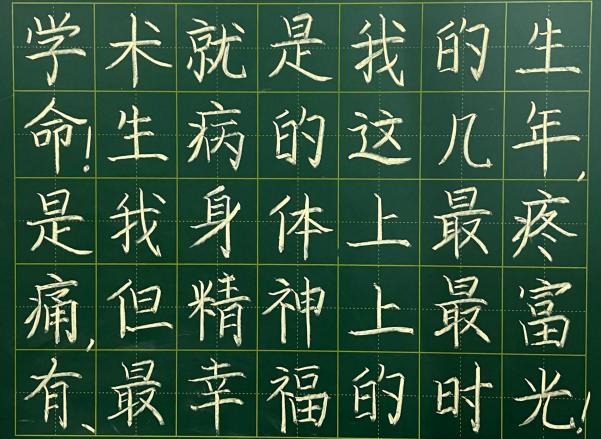 学术就是我的生
命!生病的这几年,
是我身体上最疼
痛,但精神上最富
有、最幸福的时光!